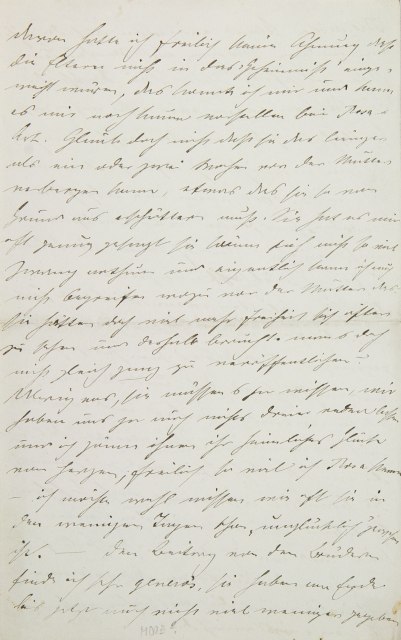 davon hatte ich freilich keine Ahnung daß
die Eltern nicht in das Geheimniß einge-
weiht wären, das konnte ich mir und kann
es mir noch kaum vorstellen bei Rosa's
Art. Glaub doch nicht daß sie das länger
als ein oder zwei Wochen vor der Mutter
verbergen kann, etwas das sie so von
Grund aus erschüttern muß. Sie hat es mir
oft genug gesagt sie kann sich nicht so viel
Zwang anthun und eigentlich kann ich auch
nicht begreifen wozu vor der Mutter das
Sie hätten doch viel mehr Freiheit sich öfters
zu sehen und deshalb brauchte man es doch
nicht gleich ganz zu veröffentlichen.
Übrigens, sie müssen es ja wissen, wir
haben uns ja auch nichts drein reden lassen
und ich gönne ihnen ihr heimliches Glück
von Herzen, freilich so viel ich Rosa kenne
– ich möchte wohl wissen wie oft sie in
den wenigen Tagen schon „unglücklich" gewesen
ist. – Den Beitrag von den Brüdern
finde ich sehr generös, sie haben am Ende
bis jetzt auch nicht viel weniger gegeben